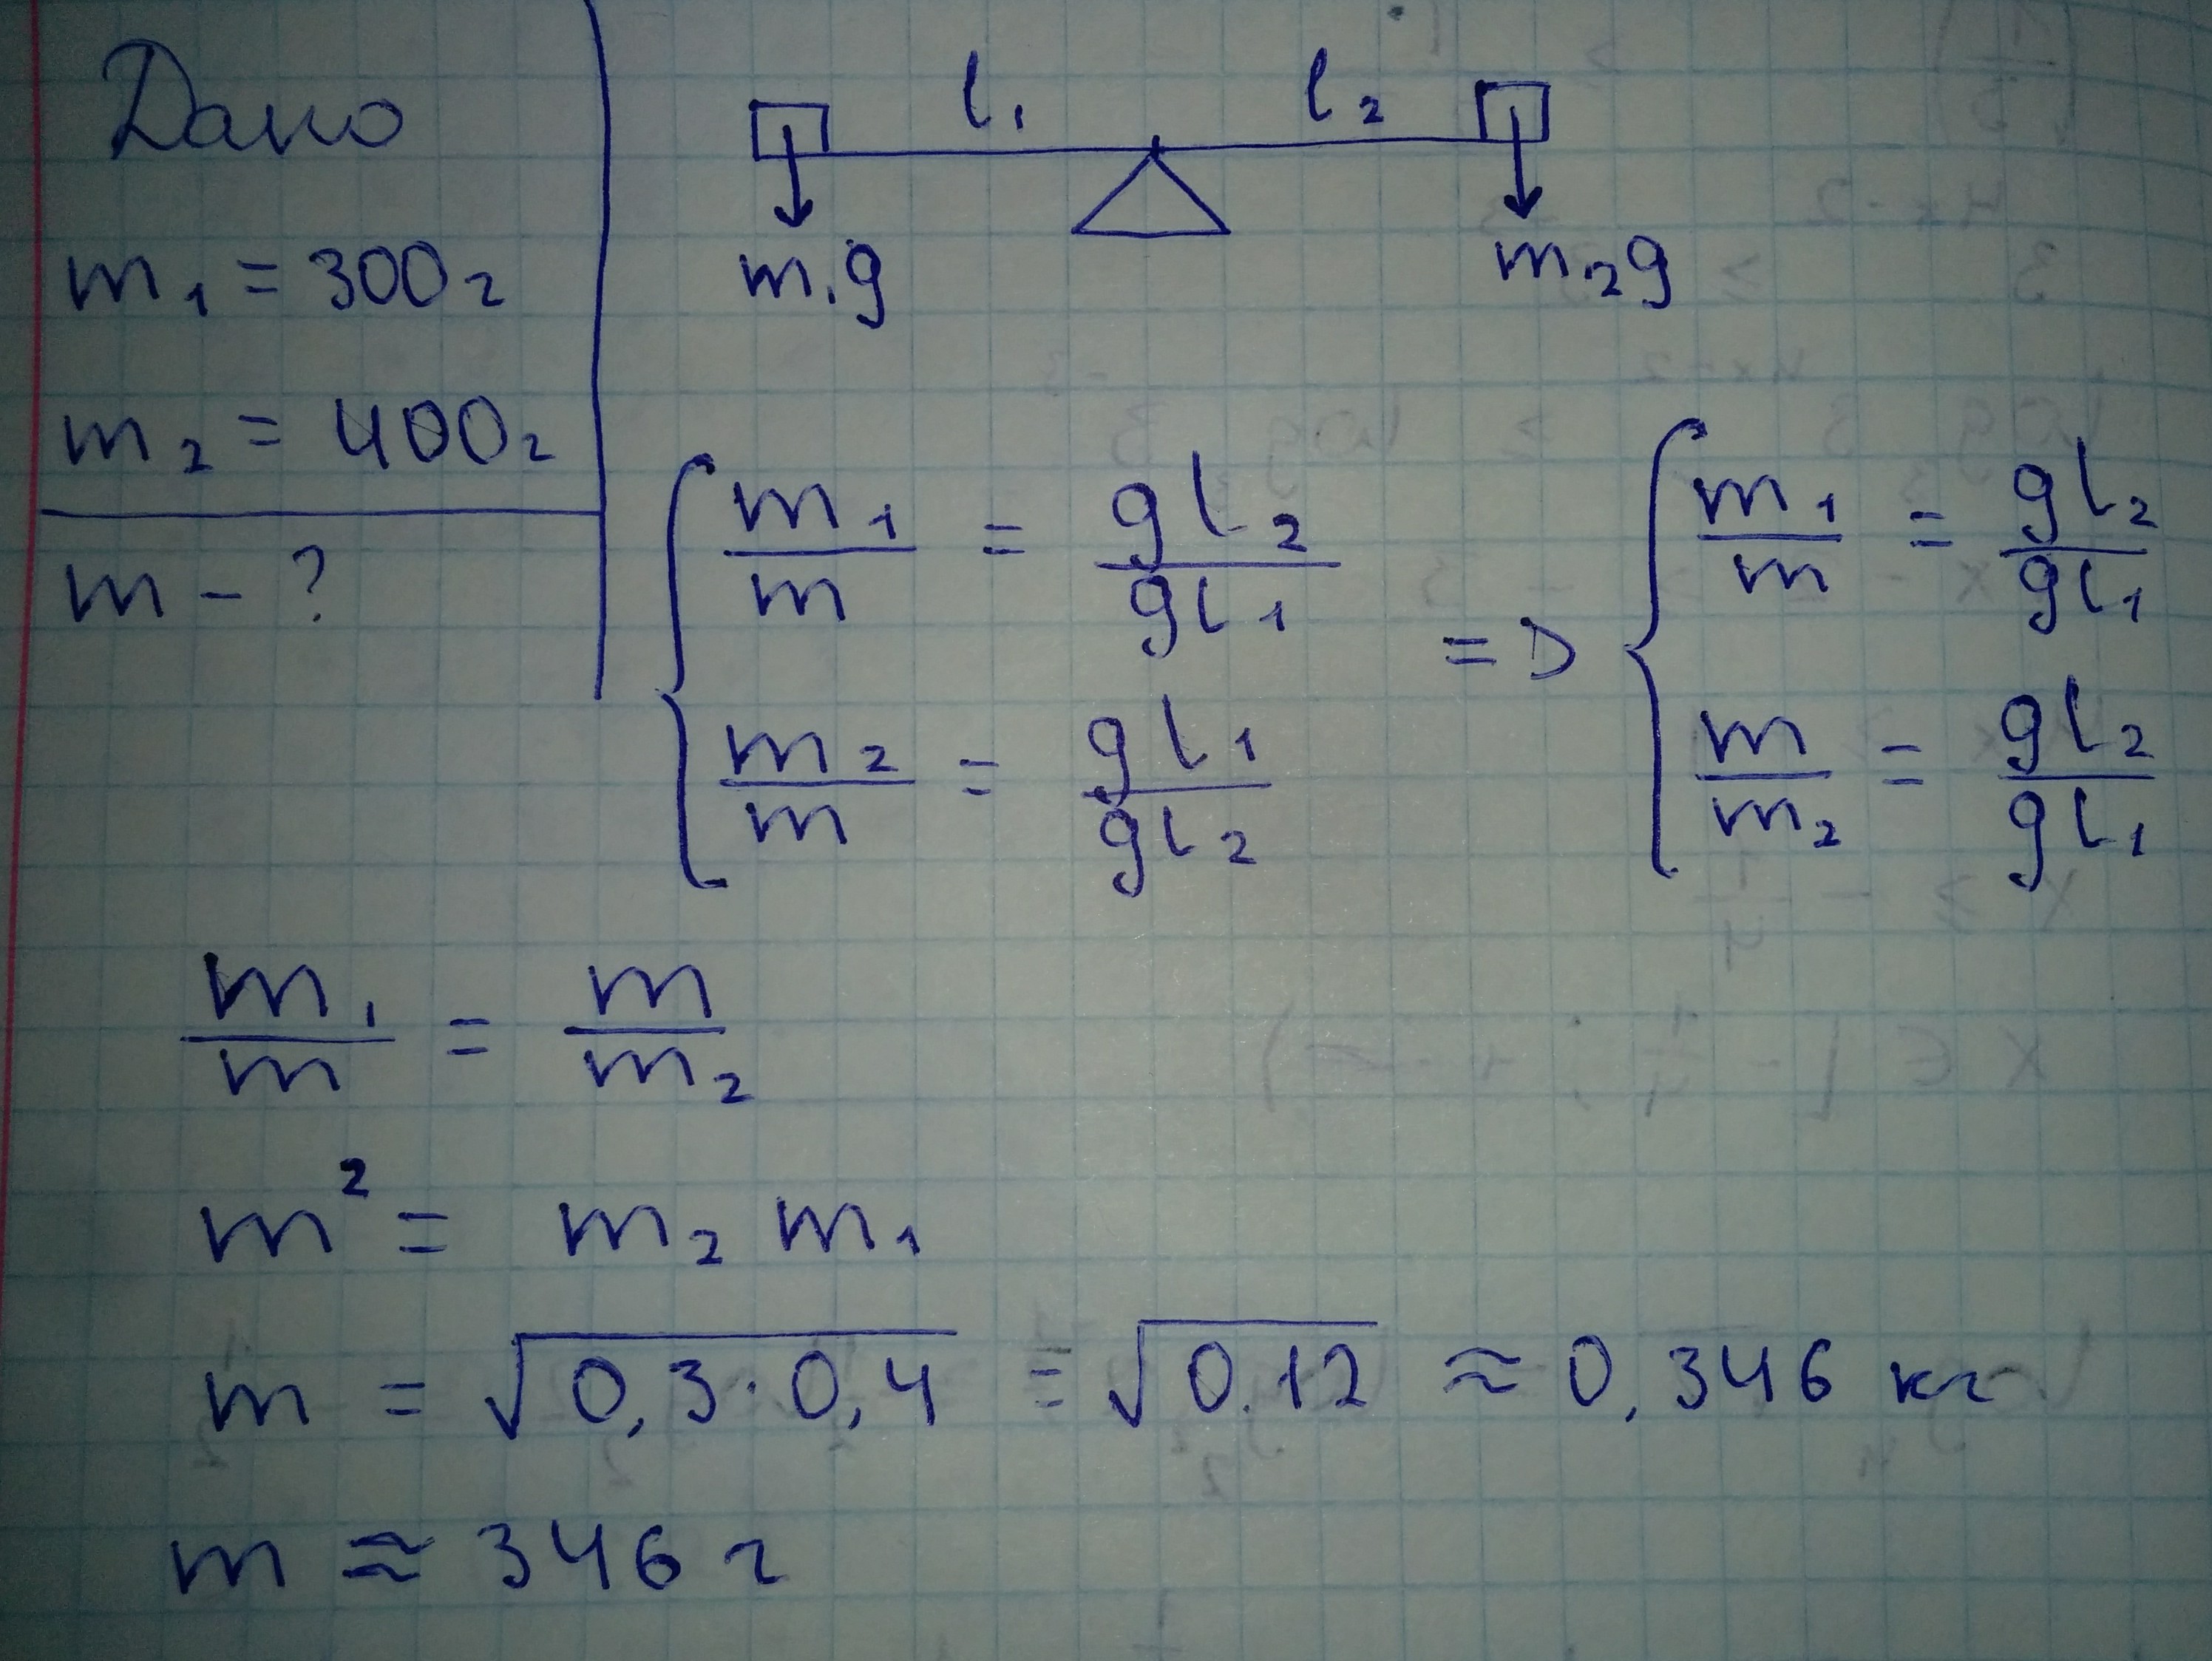 Дано
m₁ = 300г
m₂ = 400г
m - ?
l₁ l₂
m₁g m₂g
{ m₁/m = gl₂/gl₁ => { m₁/m = gl₂/gl₁
m₂/m = gl₁/gl₂ m/m₂ = gl₂/gl₁
m₁/m = m/m₂
m² = m₂ m₁
m = √0,3·0,4 = √0.12 ≈ 0,346 кг
m ≈ 346 г